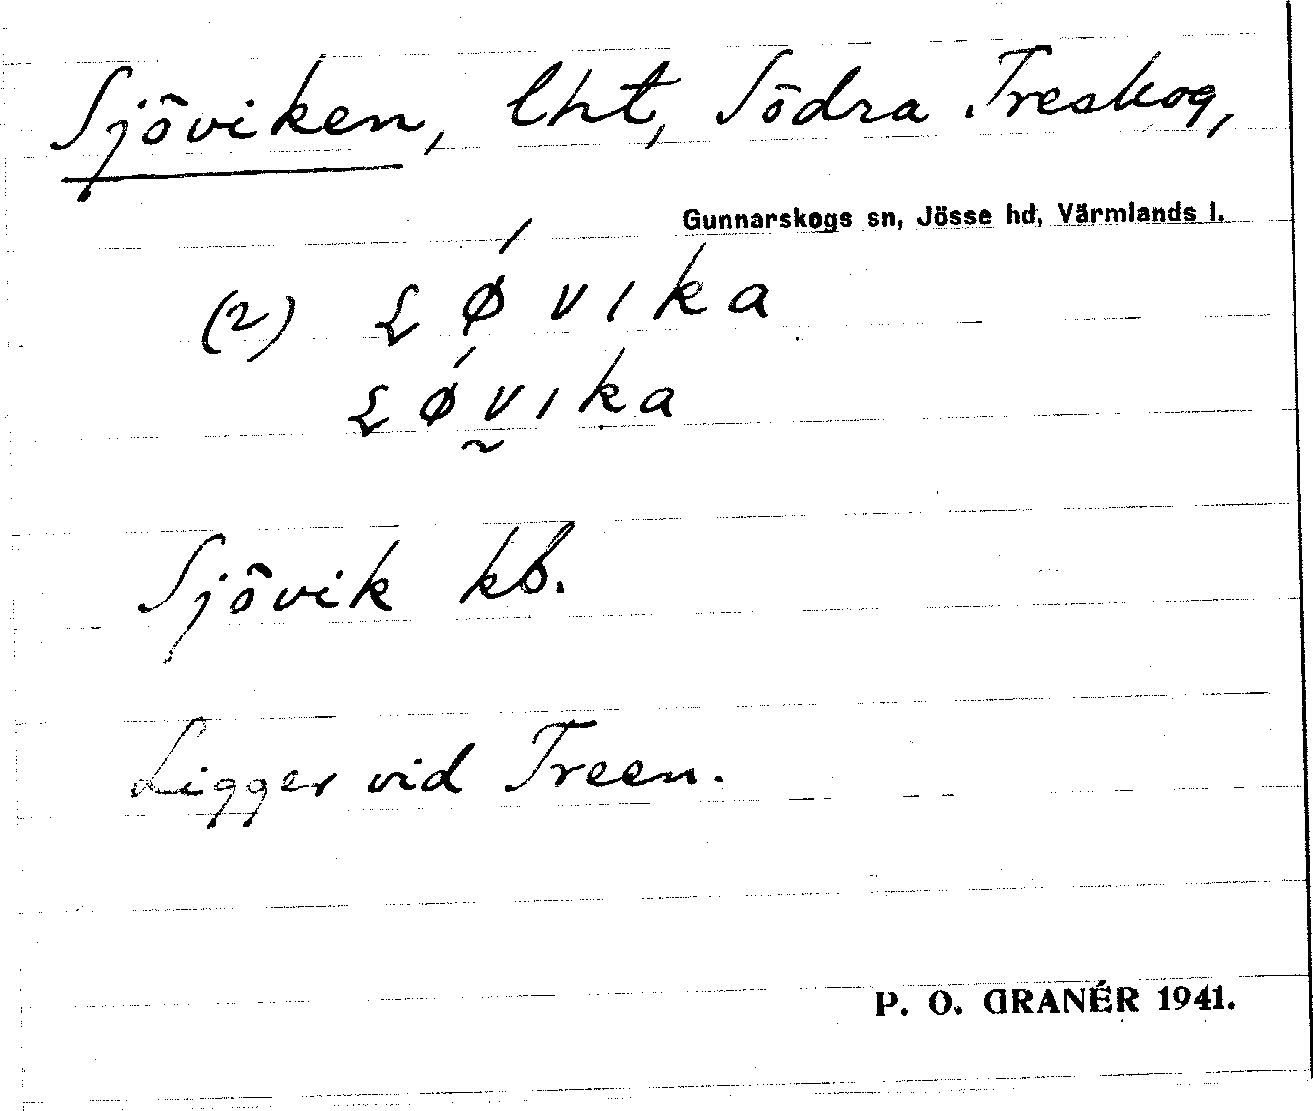 Sjöviken, lht, Södra Treskog,
Gunnarskogs sn, Jösse hd, Värmlands l.
(2)
Sjövik kb.
Ligger vid Treen.
P. O. GRANÉR 1941.